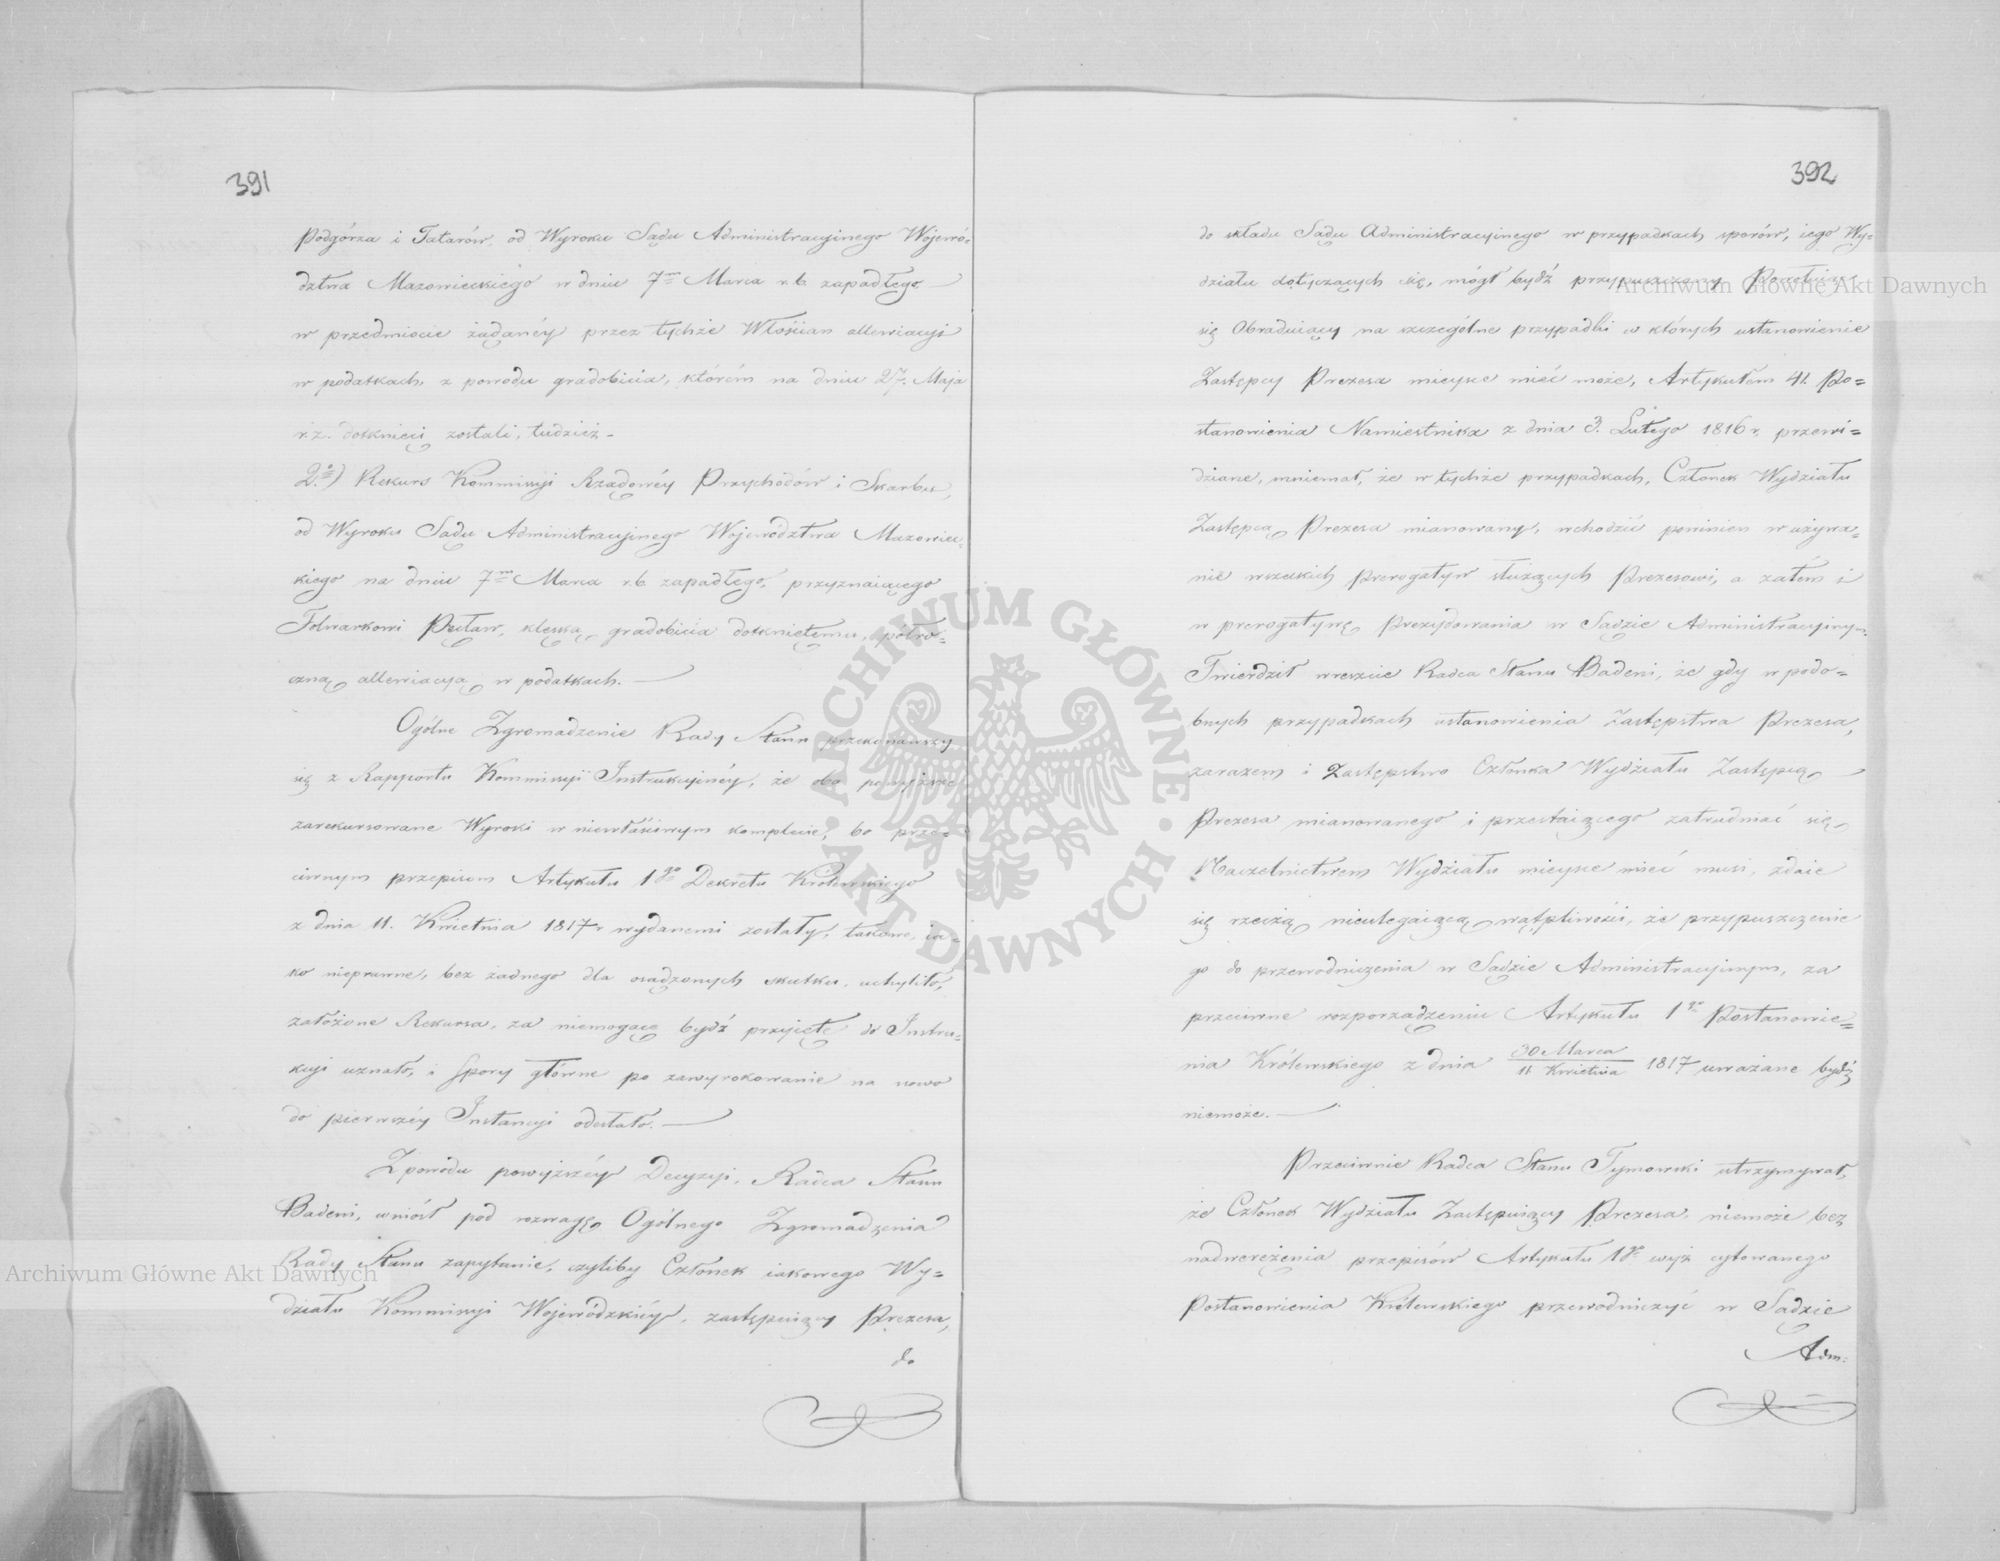 391
Podgórza i Tatarów, od Wyroku Sądu Administracyinego Wojewó-
dztwa Mazowieckiego w dniu 7m Marca r.b. zapadłego
w przedmiocie żądanéy przez tychże Włościan allewiacyi
w podatkach, z powodu gradobicia, którém na dniu 27. Maja
r.z. dotknięci zostali, tudzież.
2o) Rekurs Kommissyi Rządowéy Przychodów i Skarbu,
od Wyroku Sądu Administracyinego Województwa Mazowiec-
kiego na dniu 7m Marca r.b. zapadłego, przyznaiącego
Folwarkowi Pęław, klęską gradobicia dotkniętemu, potro-
czną allewiacyą w podatkach.
Ogólne Zgromadzenie Rady Stanu przekonawszy
się z Rapportu Kommissyi Instrukcyinéy, że oba powyższe
zarekursowane Wyroki w niewłaściwym komplecie, bo prze-
ciwnym przepisom Artykułu 1go Dekretu Królewskiego
z dnia 11. Kwietnia 1817r wydanemi zostały, takowe, ia-
ko nieprawne, bez żadnego dla osądzonych skutku, uchyliło,
założone Rekursa, za niemogące bydź przyięte do Instru-
kcyi uznało, i Spory główne po zawyrokowanie na nowo
do pierwszéy Instancyi odesłało.
Z powodu powyższéy Decyzyi, Radca Stanu
Badeni, wniósł pod rozwagę Ogólnego Zgromadzenia
Rady Stanu zapytanie, czyliby Członek iakowego Wy-
działu Kommissyi Wojewódzkiéy, zastępuiący Prezesa,
do
392
do składu Sądu Administracyinego w przypadkach sporów, iego Wy-
działu dotyczących się, mógł bydź przypuszczony Powołuiąc
się Obraduiący na szczególne przypadki w których ustanowienie
Zastępcy Prezesa mieysce mieć może, Artykułem 41. Po-
stanowienia Namiestnika z dnia 3. Lutego 1816 r. przewi-
dziane, mniemał, że w tychże przypadkach, Członek Wydziału
Zastępcą Prezesa mianowany, wchodzić powinien w używa-
nie wszelkich prerogatyw służących Prezesowi, a zatém i
w prerogatywę Prezydowania w Sądzie Administracyinym.
Twierdził wreszcie Radca Stanu Badeni, że gdy w podo-
bnych przypadkach ustanowienia Zastępstwa Prezesa,
zarazem i Zastępstwo Członka Wydziału Zastępcą
Prezesa mianowanego i przestaiącego zatrudniać się
Naczelnictwem Wydziału mieysce mieć musi, zdaie
się rzeczą nieulegaiącą wątpliwości, że przypuszczenie
go do przewodniczenia w Sądzie Administracyinym, za
przeciwne rozporządzeniu Artykułu 1go Postanowie-
nia Królewskiego z dnia 30 Marca / 11 Kwietnia 1817 uważane bydź
niemoże.
Przeciwnie Radca Stanu Tymowski utrzymywał,
że Członek Wydziału Zastępuiący Prezesa, niemoże bez
nadwerężenia przepisów Artykułu 1go wyż cytowanego
Postanowienia Królewskiego przewodniczyć w Sądzie
Adm-
Archiwum Główne Akt Dawnych
Archiwum Główne Akt Dawnych
ARCHIWUM GŁÓWNE • AKT DAWNYCH •